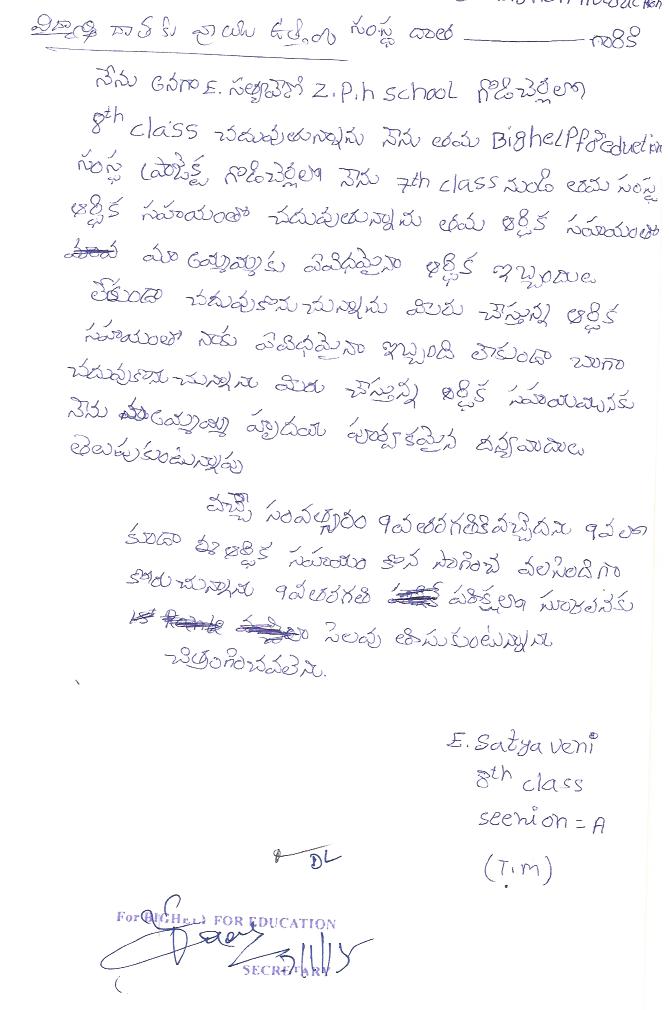 విద్యార్థి దాతకు వ్రాయు ఉత్తరం సంస్థ దాత ——— గారికి
నేను అనగా E. సత్యవేణి Z.P.h school గొడిచెర్లలో
8th class చదువుతున్నాను నేను తమ Bighelp for eduction
సంస్థ ప్రాజెక్ట్ గొడిచెర్లలో నేను 7th class నుండి తమ సంస్థ
ఆర్థిక సహాయంతో చదువుతున్నాను తమ ఆర్థిక సహాయంతో
మా అమ్మకు ఏవిధమైనా ఆర్థిక ఇబ్బందులు
లేకుండా చదువుకొనుచున్నాను మీరు చేస్తున్న ఆర్థిక
సహాయంతో నాకు ఏవిధమైనా ఇబ్బంది లేకుండా బాగా
చదువుకొనుచున్నాను మీరు చేస్తున్న ఆర్థిక సహాయమునకు
నేను మా అమ్మ హృదయ పూర్వకమైన దన్యవాదాలు
తెలుపుకుంటున్నాము
వచ్చే సంవత్సరం 9వతరగతికి వచ్చెదను 9వలో
కూడా ఈ ఆర్థిక సహాయం కొన సాగించ వలసిందిగా
కోరుచున్నాను 9వతరగతి పరిక్షలకు
సెలవు తీసుకుంటున్నాను
చిత్తగించవలెను.
E. Satya veni
8th class
seenion = A
(T.M)
DL
For BIGHelp FOR EDUCATION
SECRETARY